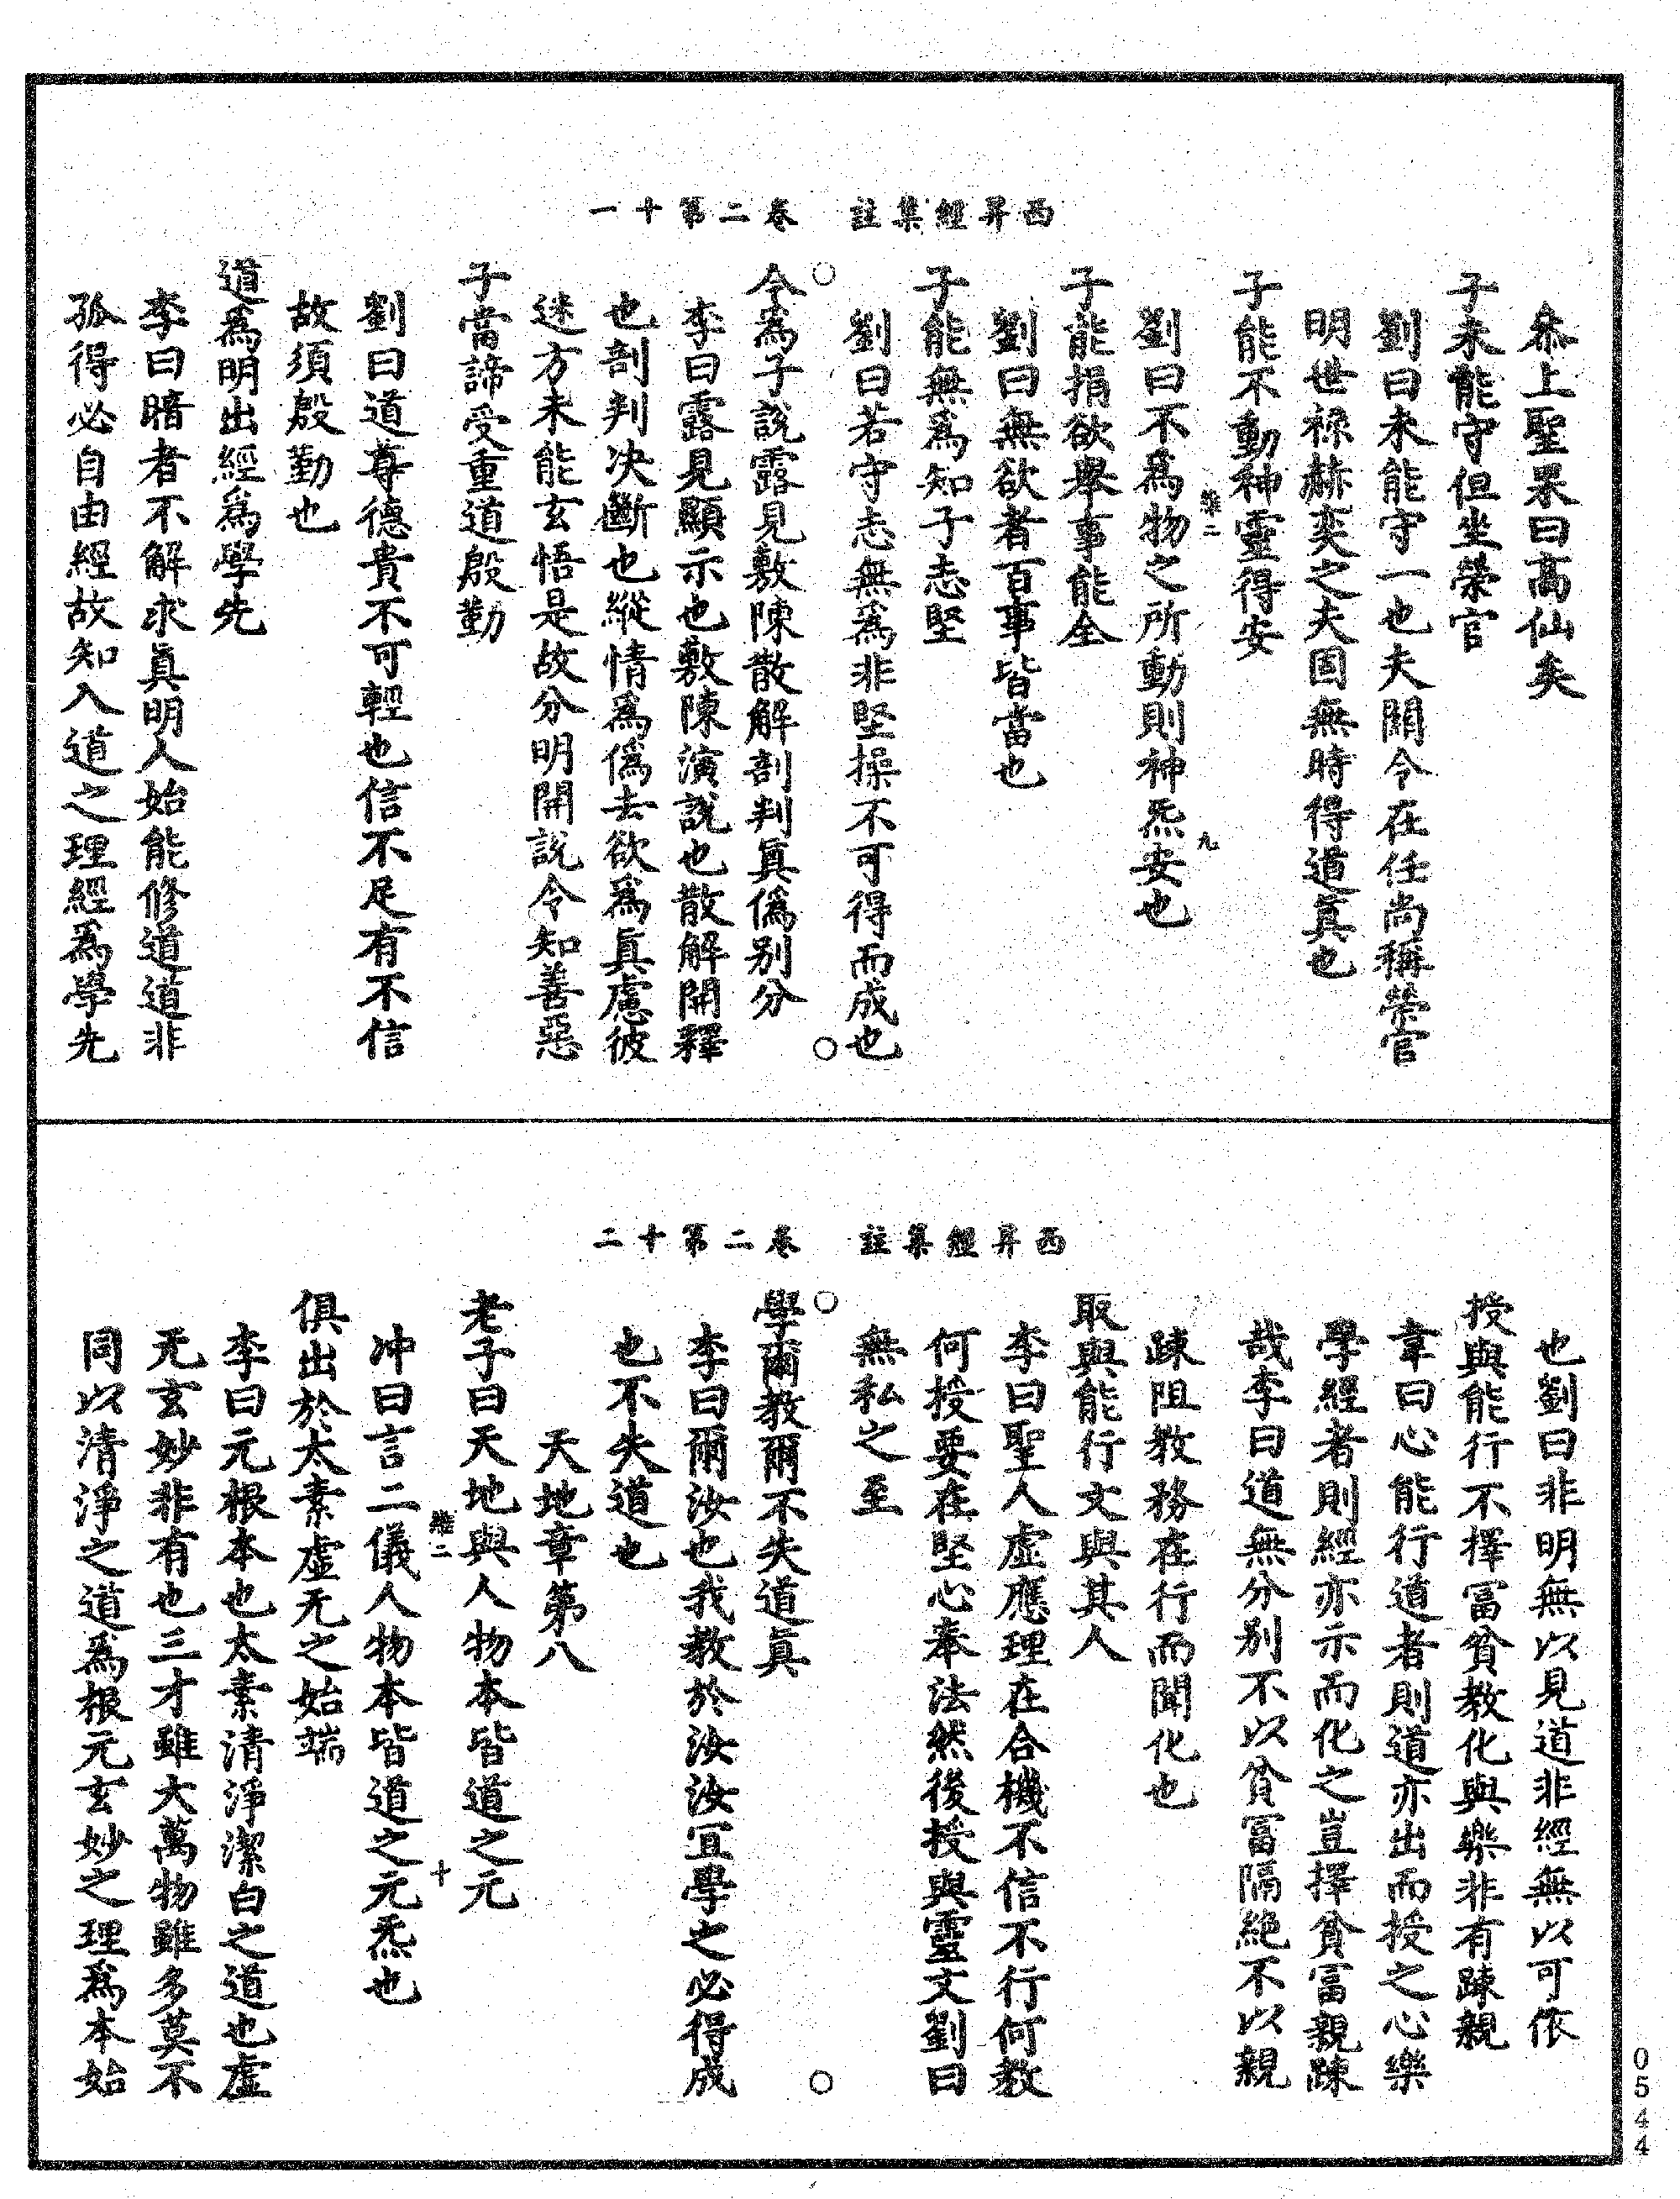 西昇經集註　卷二第十一
叅上聖果曰高仙矣
子未能守但坐榮官
劉曰未能守一也夫關令在任尚稱榮官
明世祿赫奕之夫固無時得道眞也
子能不動神靈得安
維二　九
劉曰不爲物之所動則神炁安也
子能捐欲舉事能全
劉曰無欲者百事皆當也
子能無爲知子志堅
劉曰若守志無爲非堅操不可得而成也
今爲子說露見敷陳散解剖判眞僞别分
李曰露見顯示也敷陳演說也散解開釋
也剖判决斷也縱情爲僞去欲爲眞慮彼
迷方未能玄悟是故分明開說令知善惡
子當諦受重道殷勤
劉曰道尊德貴不可輕也信不足有不信
故須殷勤也
道爲明出經爲學先
李曰暗者不解求眞明人始能修道道非
孤得必自由經故知入道之理經爲學先
西昇經集註　卷二第十二
也劉曰非明無以見道非經無以可依
授與能行不擇冨貧教化與樂非有踈親
韋曰心能行道者則道亦出而授之心樂
學經者則經亦示而化之豈擇貧冨親踈
哉李曰道無分别不以貧冨隔絶不以親
踈阻教務在行而聞化也
取與能行文與其人
李曰聖人虚應理在合機不信不行何教
何授要在堅心奉法然後授與靈文劉曰
無私之至
學爾教爾不失道眞
李曰爾汝也我教於汝汝冝學之必得成
也不失道也
天地章第八
老子曰天地與人物本皆道之元
維二　十
冲曰言二儀人物本皆道之元炁也
俱出於太素虚无之始端
李曰元根本也太素清淨潔白之道也虚
无玄妙非有也三才雖大萬物雖多莫不
同以清淨之道爲根元玄妙之理爲本始
0544